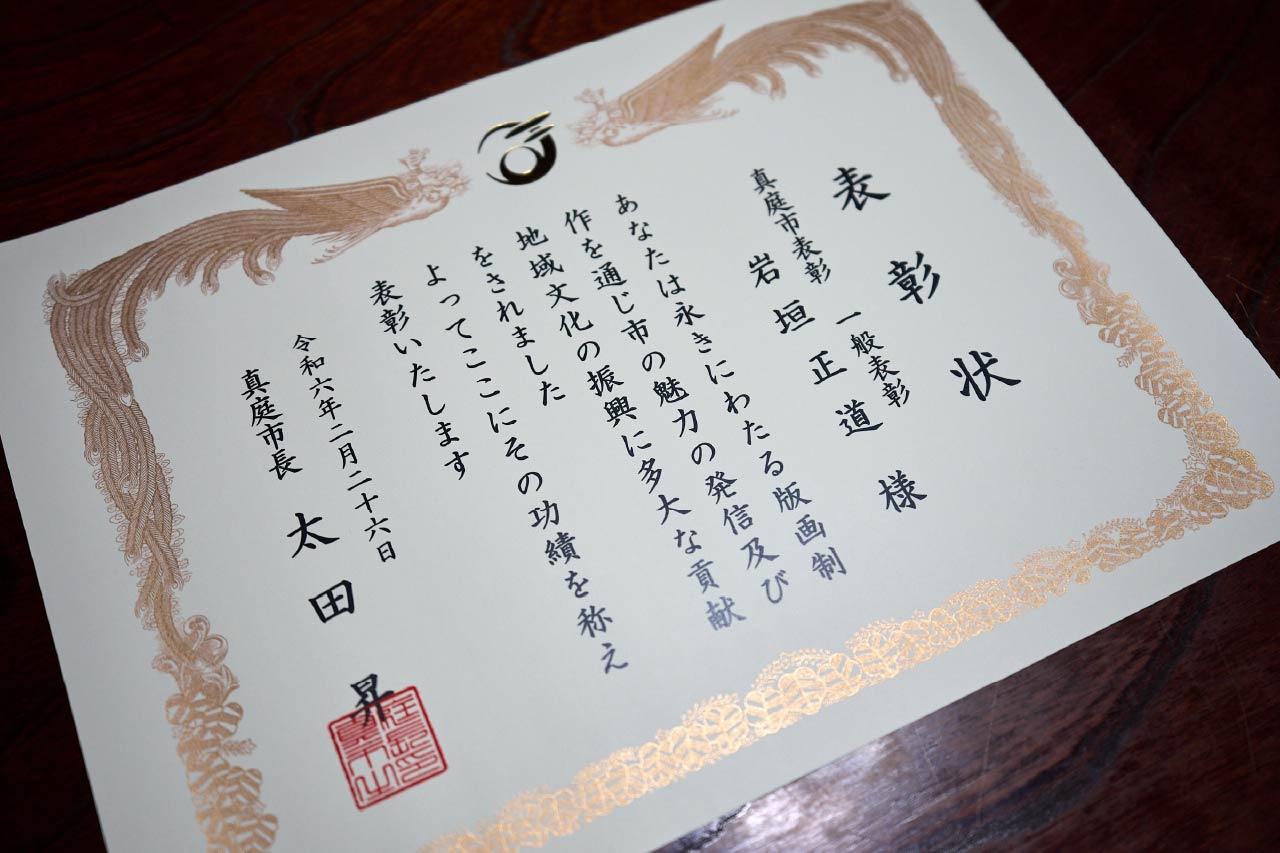 表彰状
真庭市表彰 一般表彰
岩垣正道 様
あなたは永きにわたる版画制
作を通じ市の魅力の発信及び
地域文化の振興に多大な貢献
をされました
よってここにその功績を称え
表彰いたします
令和六年二月二十六日
真庭市長 太田 昇